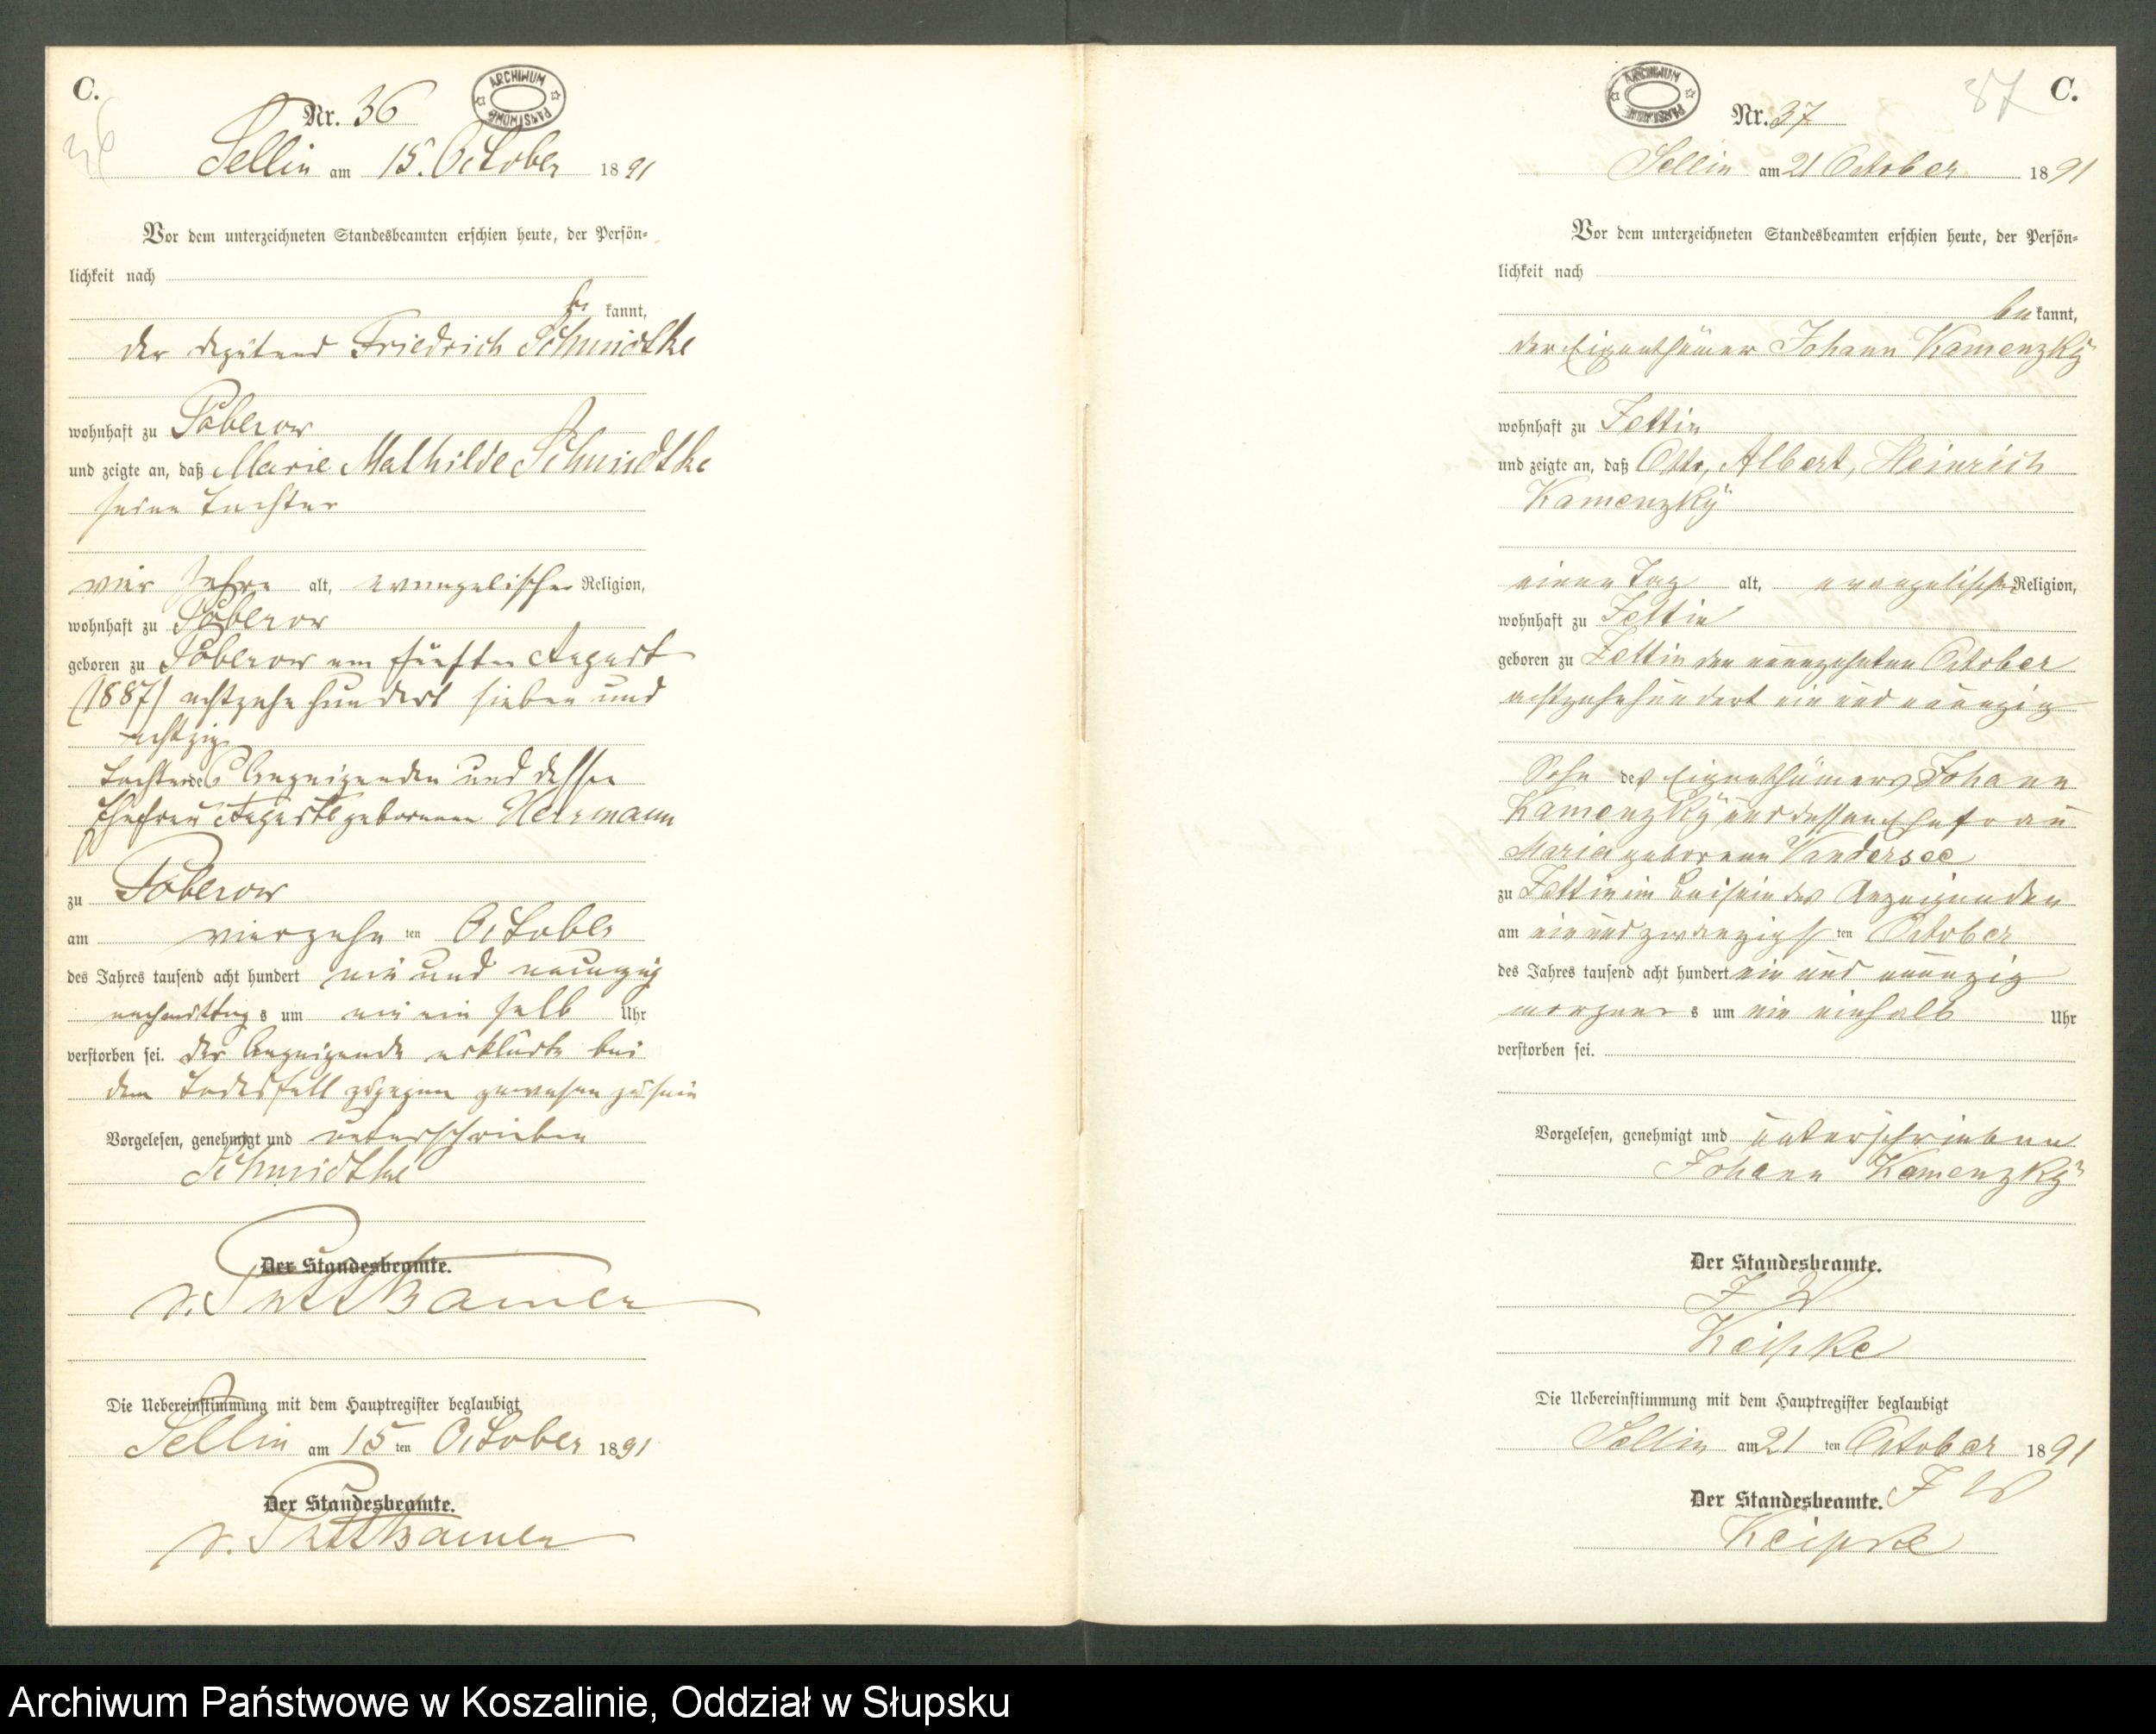 C.
36
Nr. 36
ARCHIWUM PAŃSTWOWE
Sellin am 15. October 1891
Vor dem unterzeichneten Standesbeamten erschien heute, der Persön-
lichkeit nach
be kannt,
der Deputant Friedrich Schmidtke
wohnhaft zu Poberow
und zeigte an, daß Marie Mathilde Schmidtke
seine Tochter
vier Jahre alt, evangelischer Religion,
wohnhaft zu Poberow
geboren zu Poberow am fünften August
(1887) achtzehnhundert sieben und
achtzig
Tochter des Anzeigenden und dessen
Ehefrau Auguste geborenen Herrmann
zu Poberow
am vierzehn ten October
des Jahres tausend acht hundert ein und neunzig
nachmittag s um ein ein halb Uhr
verstorben sei. Der Anzeigende erklärte bei
dem Todesfall zugegen gewesen zu sein
Vorgelesen, genehmigt und unterschrieben
Schmidtke
Der Standesbeamte.
v. Puttkamer
Die Uebereinstimmung mit dem Hauptregister beglaubigt
Sellin am 15 ten October 1891
Der Standesbeamte.
v. Puttkamer
37 C.
ARCHIWUM PAŃSTWOWE
Nr. 37
Sellin am 21 October 1891
Vor dem unterzeichneten Standesbeamten erschien heute, der Persön-
lichkeit nach
be kannt,
der Eigenthümer Johann Kamenzky
wohnhaft zu Zettin
und zeigte an, daß Otto, Albert, Heinrich
Kamenzky
einen Tag alt, evangelischer Religion,
wohnhaft zu Zettin
geboren zu Zettin den neunzehnten October
achtzehnhundert ein und neunzig
Sohn des Eigenthümers Johann
Kamenzky und dessen Ehefrau
Marie geborene Vandersee
zu Zettin im Beisein des Anzeigenden
am ein und zwanzigst ten October
des Jahres tausend acht hundert ein und neunzig
morgens s um ein einhalb Uhr
verstorben sei.
Vorgelesen, genehmigt und unterschrieben
Johann Kamenzky
Der Standesbeamte.
Keipke
Die Uebereinstimmung mit dem Hauptregister beglaubigt
Sellin am 21 ten October 1891
Der Standesbeamte.
Keipke
Archiwum Państwowe w Koszalinie, Oddział w Słupsku